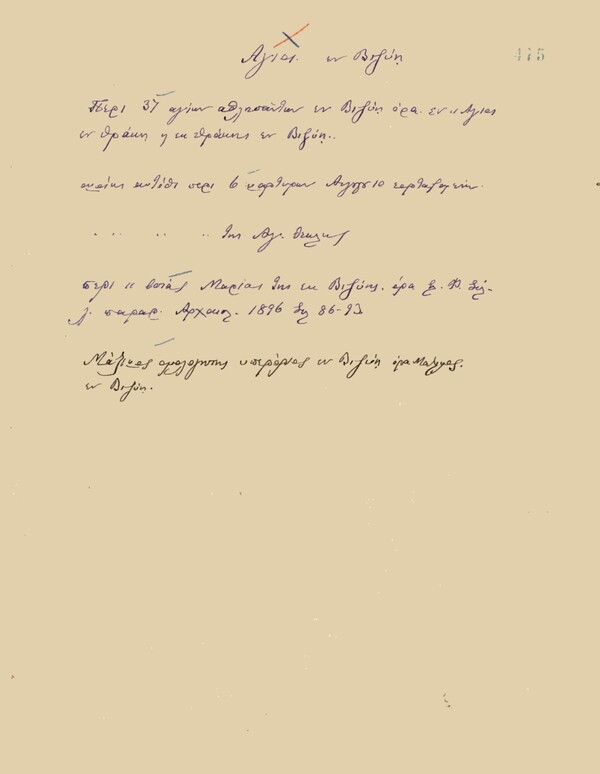 Αγιοι εν Βιζύη 475
Περι 37 αγίων αθλησάντων εν Βιζύη όρα εν " Αγιος
εν θράκη η εκ θράκης εν Βιζύη.
περι 6 μαρτυρων
" " " " της Αγ. Θεκλης
περι " οσιάς Μαρίας της εκ Βιζύης. όρα Ε. Φ. Συλ-
λ. παραρ. Αρχαιολ. 1896 Σελ 86-93
Μάξιμος ομολογητης υπερόριος εν Βιζύη όρα Μαξιμος
εν Βιζύη.